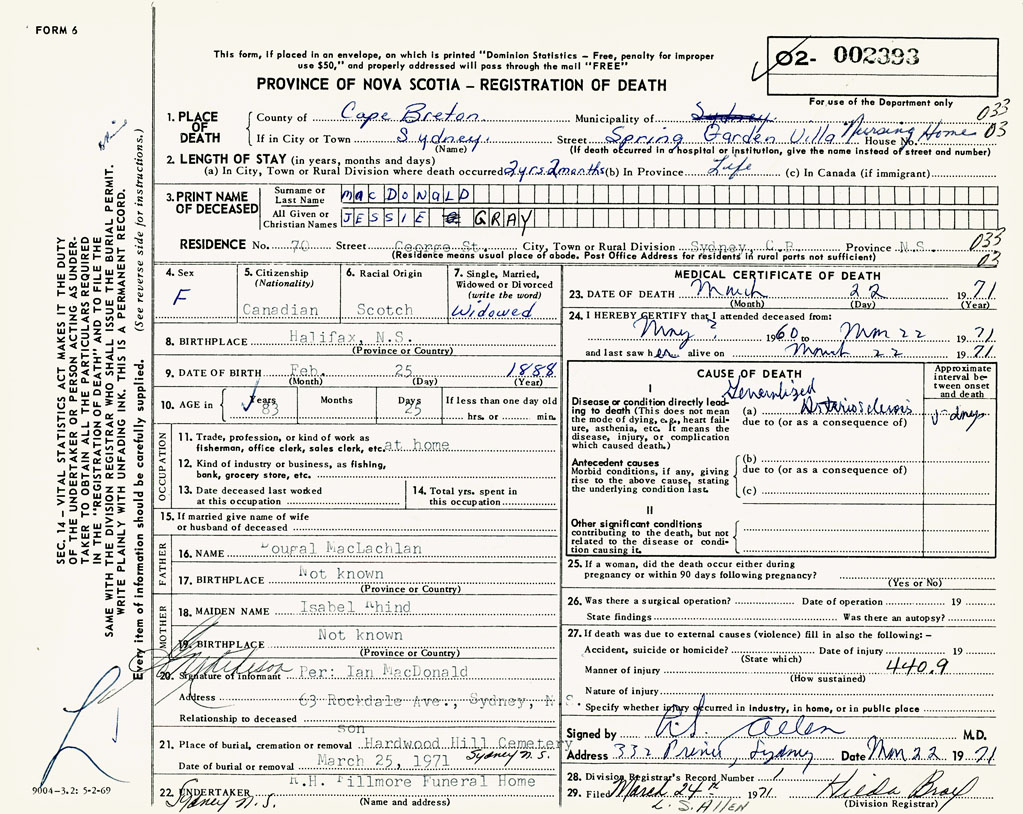 FORM 6
This form, if placed in an envelope, on which is printed "Dominion Statistics – Free, penalty for improper
use $50," and properly addressed will pass through the mail "FREE"
02- 002393
PROVINCE OF NOVA SCOTIA – REGISTRATION OF DEATH
For use of the Department only
033
1. PLACE OF DEATH County of Cape Breton Municipality of Sydney
If in City or Town Sydney. Street Spring Garden Villa Nursing Home House No. 03
(Name) (If death occurred in a hospital or institution, give the name instead of street and number)
2. LENGTH OF STAY (in years, months and days)
(a) In City, Town or Rural Division where death occurred 2 yrs 2 months (b) In Province Life (c) In Canada (if immigrant)
3. PRINT NAME OF DECEASED Surname or Last Name MacDONALD
All Given or Christian Names JESSIE GRAY
RESIDENCE No. 70 Street George St. City, Town or Rural Division Sydney, C.B. Province N.S. 033
(Residence means usual place of abode. Post Office Address for residents in rural parts not sufficient) 03
4. Sex F
5. Citizenship (Nationality) Canadian
6. Racial Origin Scotch
7. Single, Married, Widowed or Divorced (write the word) Widowed
8. BIRTHPLACE Halifax, N.S.
(Province or Country)
9. DATE OF BIRTH Feb. 25 1888
(Month) (Day) (Year)
10. AGE in Years 83 Months Days 25 If less than one day old hrs. or min.
OCCUPATION
11. Trade, profession, or kind of work as
fisherman, office clerk, sales clerk, etc. at home
12. Kind of industry or business, as fishing,
bank, grocery store, etc.
13. Date deceased last worked
at this occupation
14. Total yrs. spent in
this occupation
15. If married give name of wife
or husband of deceased
FATHER
16. NAME Dougal MacLachlan
17. BIRTHPLACE Not known
(Province or Country)
MOTHER
18. MAIDEN NAME Isabel Rhind
19. BIRTHPLACE Not known
(Province or Country)
20. Signature of informant Per: Ian MacDonald
Address 63 Rockdale Ave., Sydney, N.S.
Relationship to deceased son
21. Place of burial, cremation or removal Hardwood Hill Cemetery
Sydney N.S.
Date of burial or removal March 25, 1971
22. UNDERTAKER R.H. Fillmore Funeral Home
Sydney N.S. (Name and address)
MEDICAL CERTIFICATE OF DEATH
23. DATE OF DEATH March 22 1971
(Month) (Day) (Year)
24. I HEREBY CERTIFY that I attended deceased from:
May ? 1960 to Mar 22 1971
and last saw her alive on March 22 1971
CAUSE OF DEATH
Approximate interval between onset and death
I
Disease or condition directly leading to death (This does not mean the mode of dying, e.g., heart failure, asthenia, etc. It means the disease, injury, or complication which caused death.)
(a) Generalized Arteriosclerosis
due to (or as a consequence of)
Antecedent causes
Morbid conditions, if any, giving rise to the above cause, stating the underlying condition last.
(b)
due to (or as a consequence of)
(c)
II
Other significant conditions
contributing to the death, but not related to the disease or condition causing it.
25. If a woman, did the death occur either during
pregnancy or within 90 days following pregnancy?
(Yes or No)
26. Was there a surgical operation? Date of operation 19
State findings Was there an autopsy?
27. If death was due to external causes (violence) fill in also the following: –
Accident, suicide or homicide? Date of injury 19
(State which)
Manner of injury 440.9
(How sustained)
Nature of injury
Specify whether injury occurred in industry, in home, or in public place
Signed by L.S. Allen M.D.
Address 332 Prince, Sydney Date Mar 22 1971
28. Division Registrar's Record Number 1
29. Filed March 24th 1971 Hilda Bray
(Division Registrar)
L. S. ALLEN
SEC. 14 – VITAL STATISTICS ACT MAKES IT THE DUTY
OF THE UNDERTAKER OR PERSON ACTING AS UNDER-
TAKER TO OBTAIN ALL THE PARTICULARS REQUIRED
IN THE "REGISTRATION OF DEATH" AND TO FILE THE
SAME WITH THE DIVISION REGISTRAR WHO SHALL ISSUE THE BURIAL PERMIT.
WRITE PLAINLY WITH UNFADING INK. THIS IS A PERMANENT RECORD.
Every item of information should be carefully supplied. (See reverse side for instructions.)
9004-3.2: 5-2-69